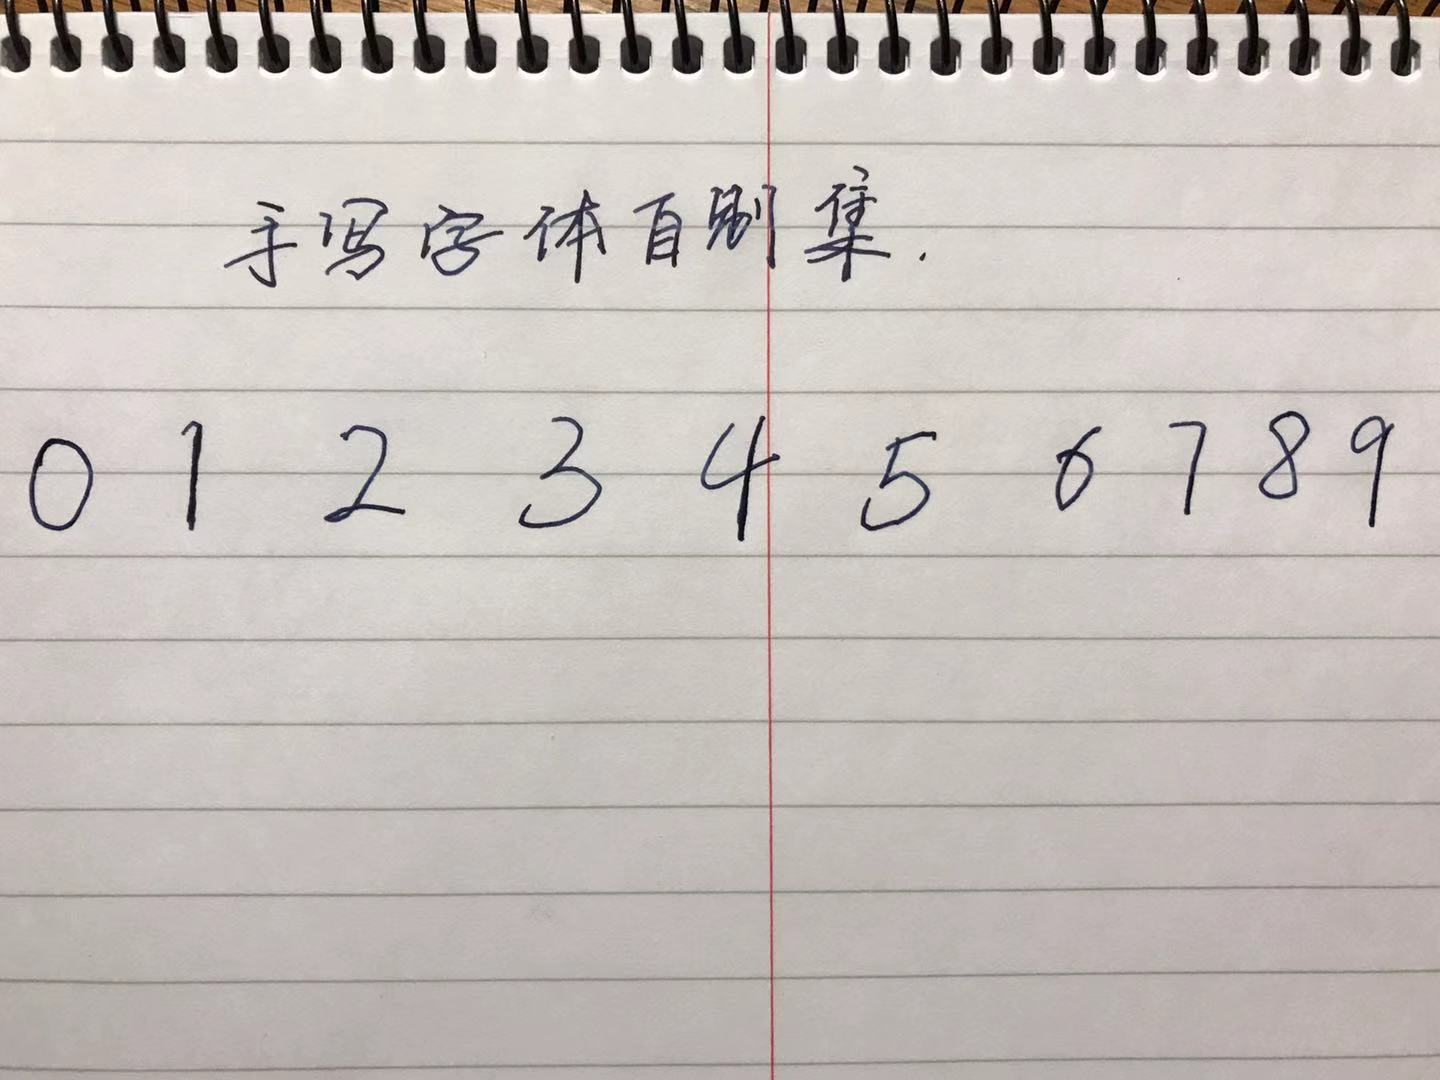 手写字体自制集.
0 1 2 3 4 5 6 7 8 9